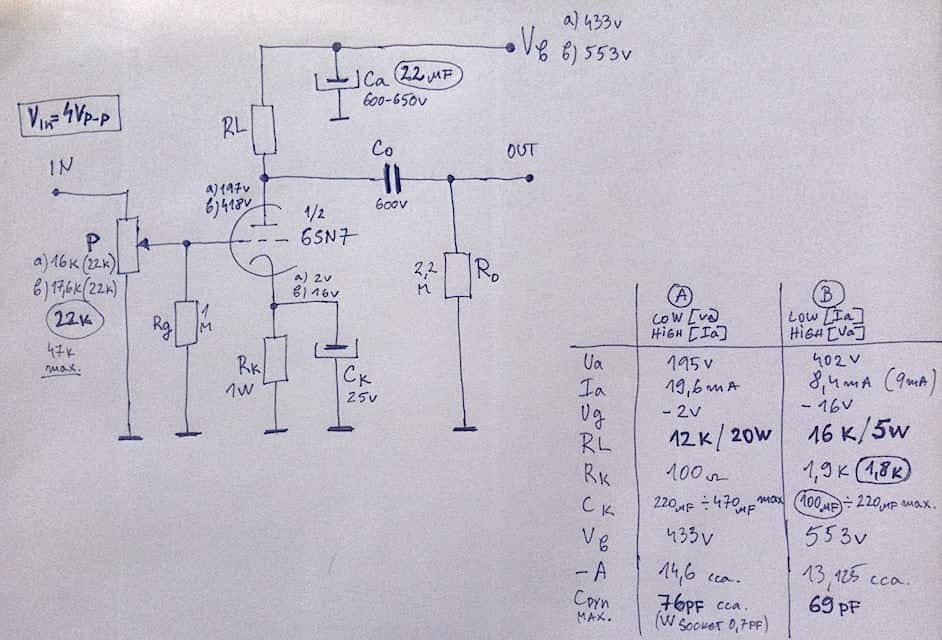 a) 433v
VB b) 553v
Ca 22 µF
600-650v
Vin=4Vp-p
RL
Co
OUT
600v
IN
a) 197v
b) 418v
1/2
6SN7
P
a) 16k (22k)
b) 17,6k (22k)
22k
47k
max.
Rg 1M
a) 2v
b) 16v
2,2 M
Ro
Rk
1W
Ck
25v
A B
LOW [Va] LOW [Ia]
HIGH [Ia] HIGH [Va]
Va 195v 402v
Ia 19,6mA 8,4mA (9mA)
Vg -2v -16v
RL 12K/20W 16K/5W
Rk 100Ω 1,9K 1,8K
Ck 220µF÷470µF max 100µF÷220µF max.
VB 433v 553v
-A 14,6 cca. 13,125 cca.
Cdyn 76pF cca. 69pF
MAX. (W SOCKET 0,7PF)